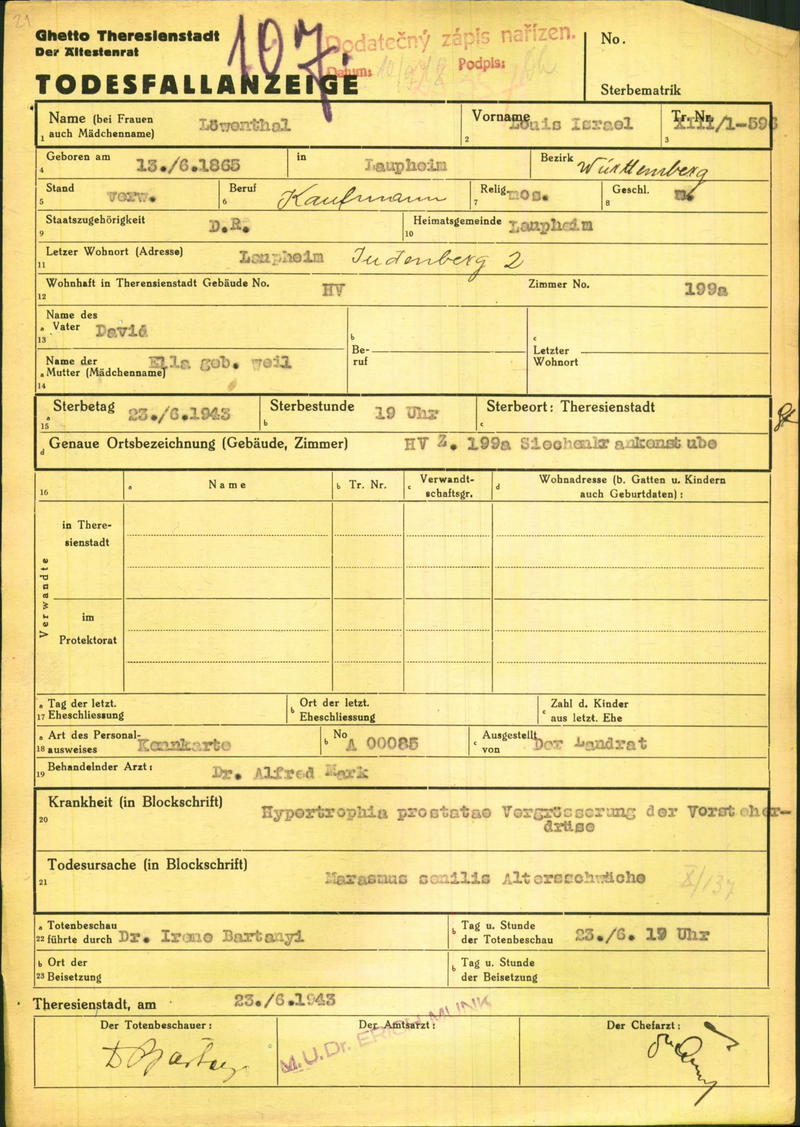 21
Ghetto Theresienstadt
Der Ältestenrat
TODESFALLANZEIGE
107
Dodatečný zápis nařízen.
Datum: Podpis:
No.
Sterbematrik
Name (bei Frauen auch Mädchenname) Löwenthal
Vorname Louis Israel
Tr. Nr. XIII/1-596
1 2 3
4 Geboren am 13./6.1865 in Laupheim Bezirk Württemberg
5 Stand verw. 6 Beruf Kaufmann 7 Relig. mos. 8 Geschl. m.
9 Staatszugehörigkeit D.R. 10 Heimatsgemeinde Laupheim
11 Letzer Wohnort (Adresse) Laupheim Judenberg 2
12 Wohnhaft in Theresienstadt Gebäude No. HV Zimmer No. 199a
Name des
a Vater David
13
b Be-
ruf
c Letzter
Wohnort
Name der Ella geb. weil
a Mutter (Mädchenname)
14
a Sterbetag 23./6.1943 b Sterbestunde 19 Uhr c Sterbeort: Theresienstadt
15
d Genaue Ortsbezeichnung (Gebäude, Zimmer) HV Z. 199a Siechenkrankenstube
16 a Name b Tr. Nr. c Verwandt-
schaftsgr. d Wohnadresse (b. Gatten u. Kindern
auch Geburtdaten):
Verwandte
in There-
sienstadt
im
Protektorat
a Tag der letzt.
17 Eheschliessung
b Ort der letzt.
Eheschliessung
c Zahl d. Kinder
aus letzt. Ehe
a Art des Personal-
18 ausweises Kennkarte
b No A 00085
c Ausgestellt
von Der Landrat
19 Behandelnder Arzt: Dr. Alfred Mark
20 Krankheit (in Blockschrift) Hypertrophia prostatae Vergrösserung der Vorsteher-
drüse
21 Todesursache (in Blockschrift) Marasmus senilis Altersschwäche X/137
a Totenbeschau
22 führte durch Dr. Irene Bartanyi
b Tag u. Stunde
der Totenbeschau 23./6. 19 Uhr
b Ort der
23 Beisetzung
b Tag u. Stunde
der Beisetzung
Theresienstadt, am 23./6.1943
Der Totenbeschauer: Der Amtsarzt: Der Chefarzt:
M.U.Dr. ERICH MUNK